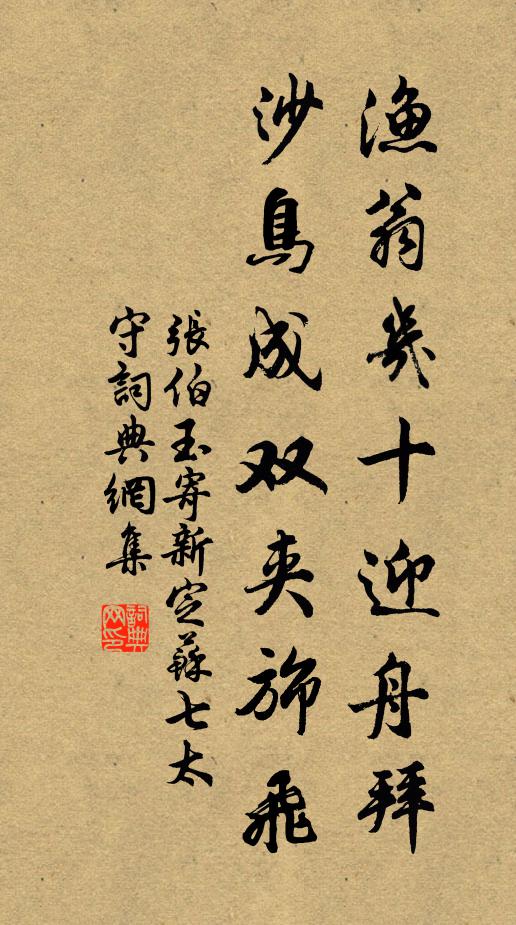 漁翁幾十迎舟拜
沙鳥成双夹旆飛
張伯玉寄新定蘇七太
守詞典網集
詞典
网印